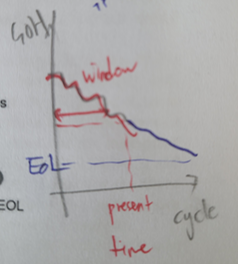 SOH
window
s
EoL
EOL
present
time
cycle